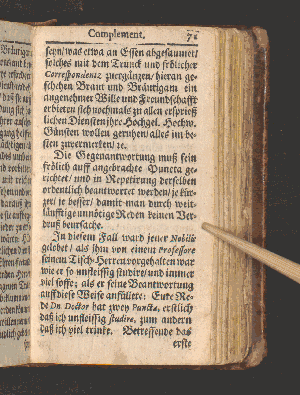 Complement. 71
seyn/ was etwa an Essen abgesaumet/
solches mit dem Trunck und frölicher
Correspondentz zuergäntzen/ hieran ge-
schehen Braut und Bräutigam ein
angenehmer Wille und Freundschafft
erbieten sich nochmals zu allen ersprieß-
lichen Diensten Ihr Hochgel. Hochw.
Günsten wollen geruhen alles im be-
sten zuvermerken/ ꝛc.
Die Gegenantwortung muß fein
frölich auff angebrachte Puncta ge-
richtet/ und in Repetirung derselben
ordentlich beantwortet werden/ je kür-
tzer je besser/ damit man durch weit-
läufftige unnötige Reden keinen Ver-
druß beursache.
In diesem Fall ward jener Nobilis
gelobet/ als ihm von einem Professore
seinem Tisch-Herren vorgehalten war
wie er so unfleissig studire/ und immer
viel soffe; als er seine Beantwortung
auff diese Weise anführte: Eure Re-
de Dn. Doctor hat zwey Puncta, erstlich
daß ich unfleissig studire, zum andern
daß ich viel trinke. Betreffende das
erste